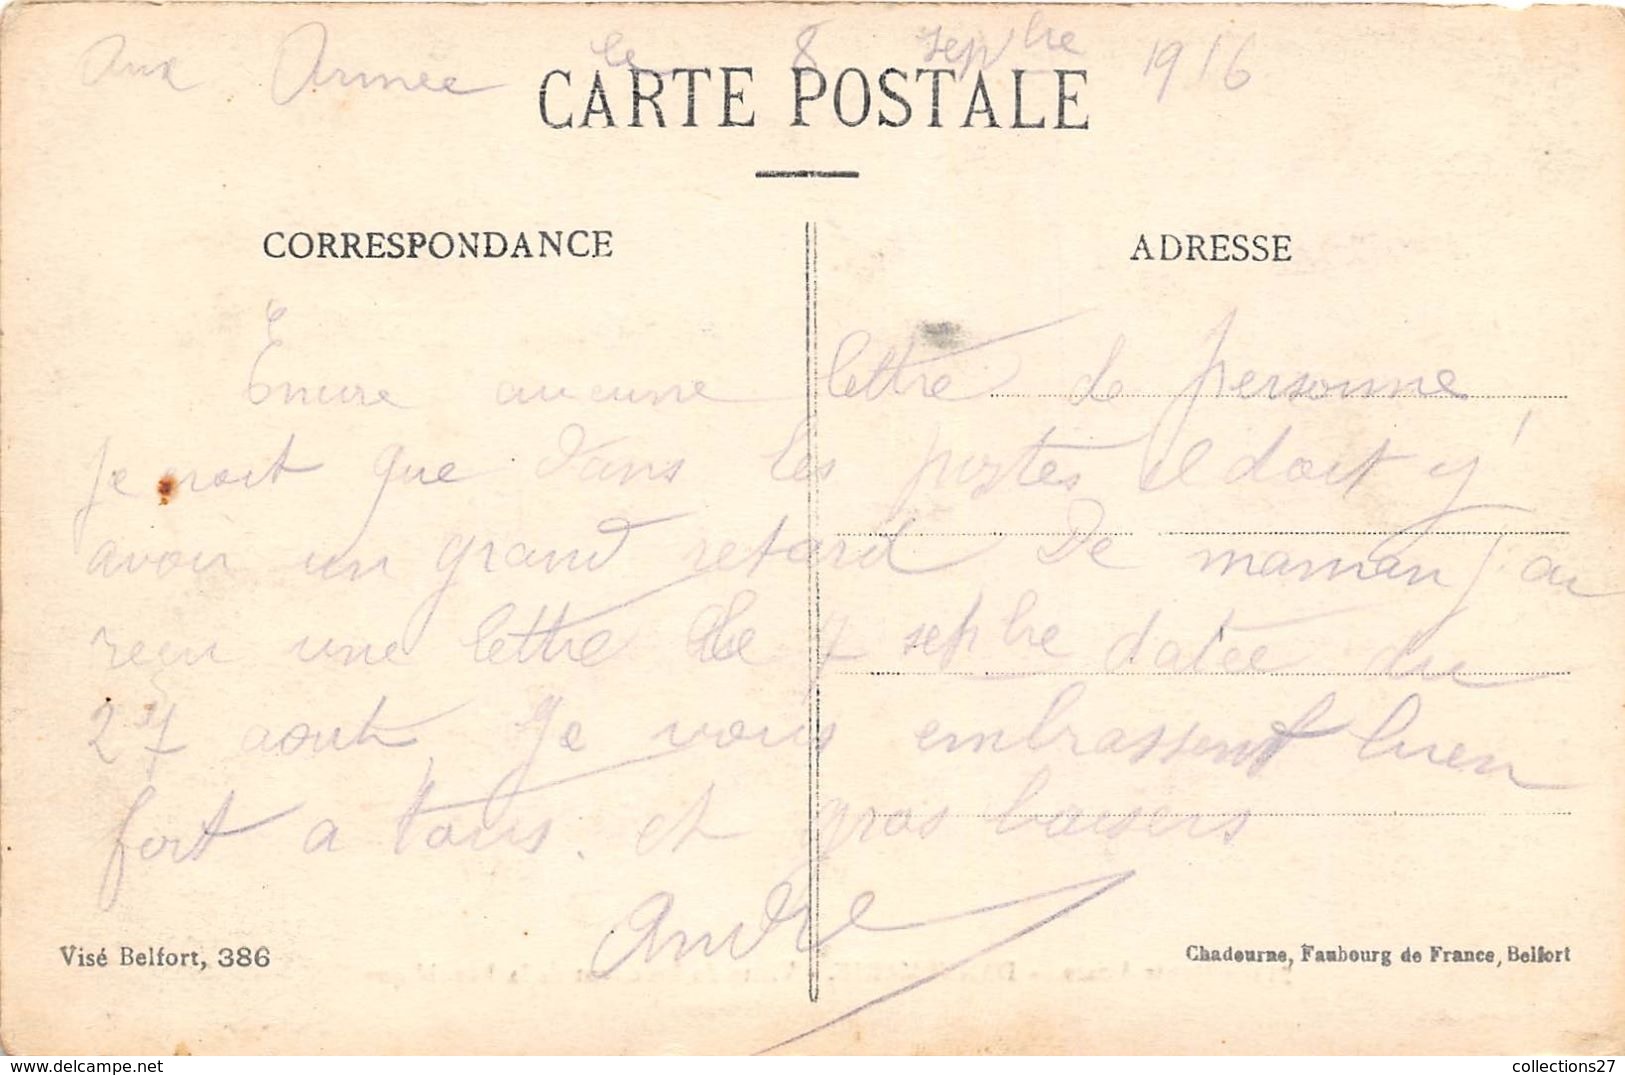 Aux Armée le 8 sepbre 1916
CARTE POSTALE
CORRESPONDANCE
ADRESSE
Encore aucune lettre de personne,
je croit que dans les postes il doit y
avoir un grand retard De maman j'ai
reçu une lettre le 7 sepbre datée du
27 aout, Je vous embrassent bien
fort a tous. et gros baisers
André
Visé Belfort, 386
Chadourne, Faubourg de France, Belfort
collections27